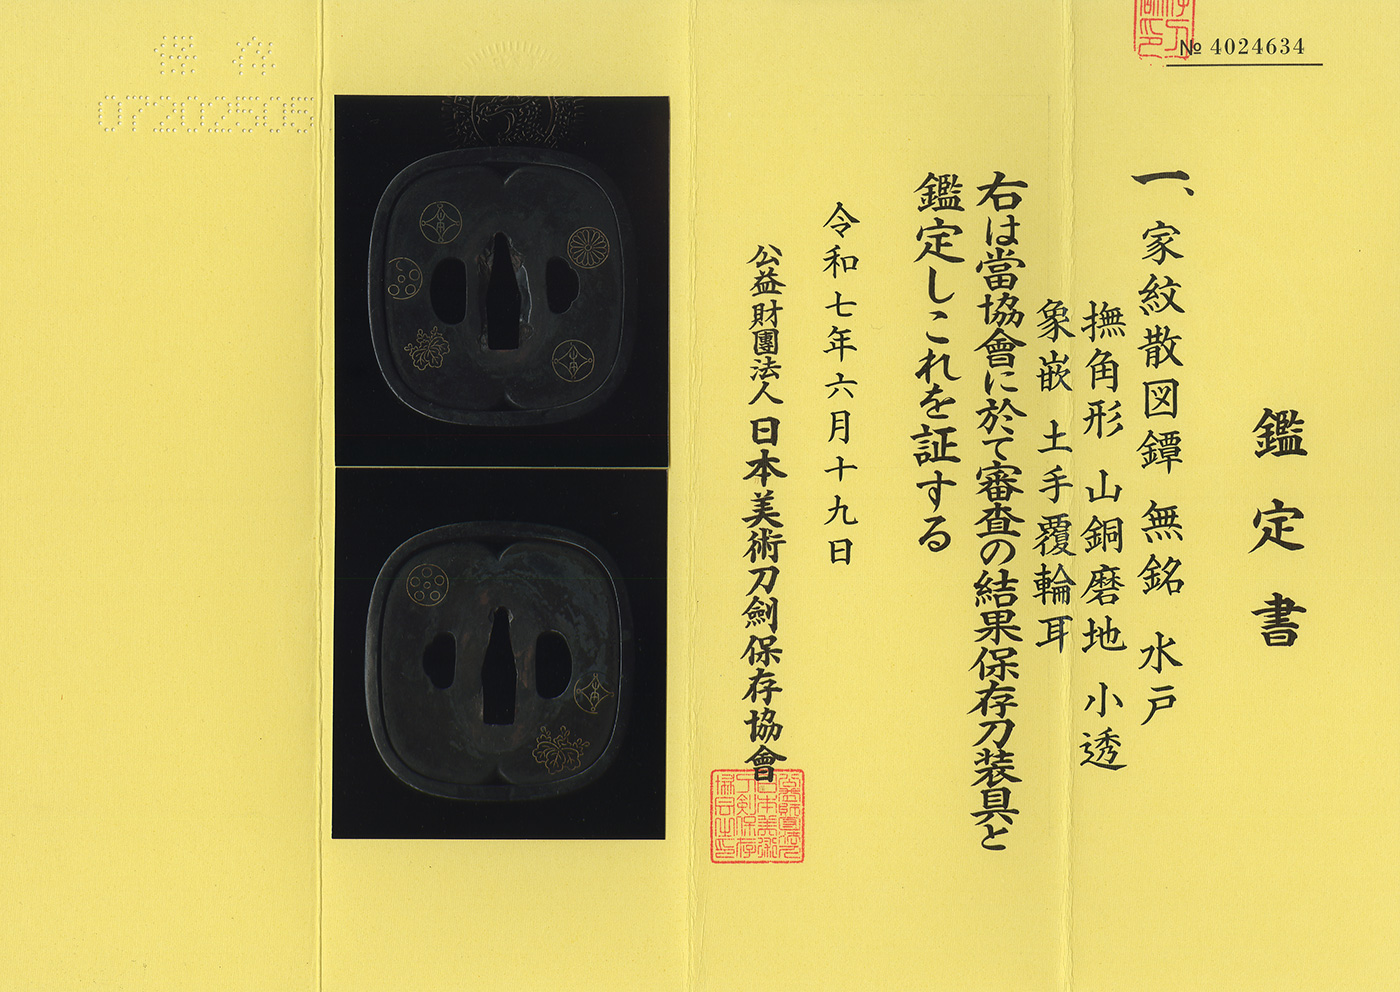 № 4024634
鑑定書
一、家紋散図鐔 無銘 水戸
撫角形 山銅磨地 小透
象嵌 土手覆輪耳
右は當協會に於て審査の結果保存刀装具と
鑑定しこれを証する
令和七年六月十九日
公益財團法人 日本美術刀劍保存協會
保存
07202505